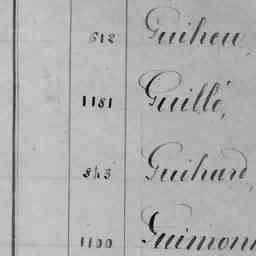 612 Guiheu,
1181 Guillé,
843 Guihard,
1100 Guimont